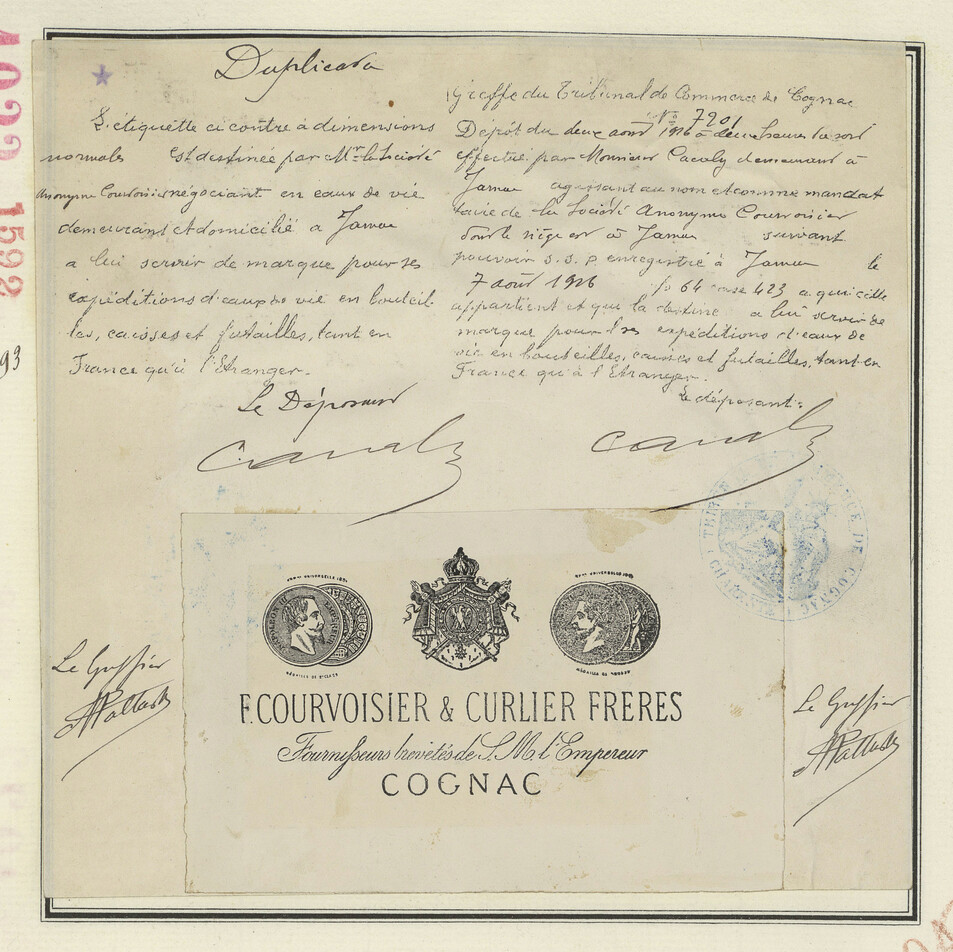 Duplicata
L'etiquette ci contre à dimensions
normales est destinée par Mr la Société
Anonyme Courvoisier négociant en eaux de vie
demeurant et domicilié à Jarnac
a lui servir de marque pour ses
expéditions d'eaux de vie en bouteil-
les, caisses et futailles, tant en
France qu'à l'Etranger.
Le Déposant
Greffe du Tribunal de Commerce de Cognac
No 7201
Dépôt du deux août 1916 à deux heures du soir
effectué par Monsieur demeurant à
Jarnac agissant au nom et comme mandat
taire de la Société Anonyme Courvoisier
dont le siège est à Jarnac suivant
pouvoir s.s.p. enregistré à Jarnac le
7 août 1916 fo 64 case 423 a qui elle
appartient et que la destine a lui servir de
marque pour ses expéditions d'eaux de
vie en bouteilles, caisses et futailles, tant en
France qu'à l'Etranger.
Le déposant:
TRIBUNAL DE COMMERCE DE COGNAC
CHARENTE
NAPOLEON III EMPEREUR
F. COURVOISIER & CURLIER FRERES
Fournisseurs brevetés de S. M. l'Empereur
COGNAC
Le Greffier
Le Greffier
1592
93